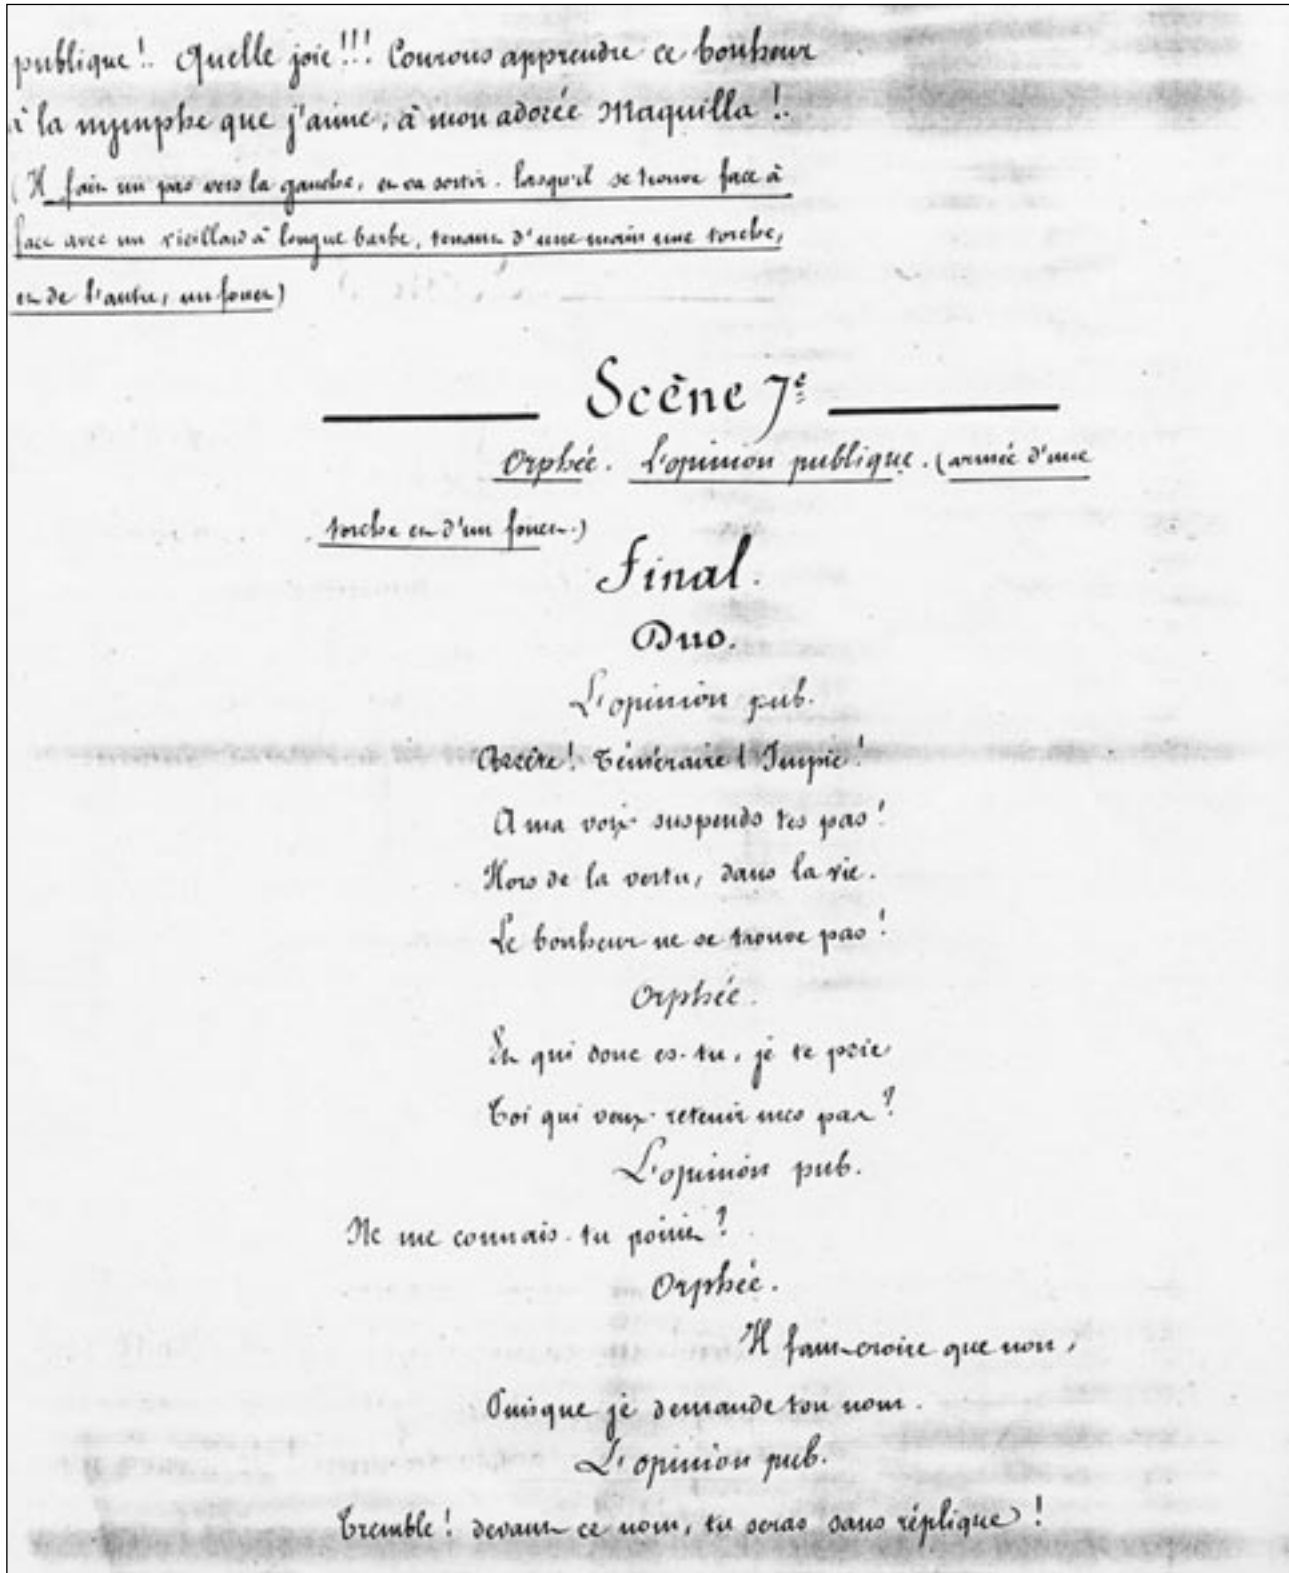 publique!. Quelle joie!!! Courons apprendre ce bonheur
à la nymphe que j'aime, à mon adorée Maquilla!.
(Il fait un pas vers la gauche, et va sortir. lorsqu'il se trouve face à
face avec un vieillard à longue barbe, tenant d'une main une torche,
et de l'autre, un fouet)
Scène 7e
Orphée. L'opinion publique. (armée d'une
torche et d'un fouet.)
Final.
Duo.
L'opinion pub.
Arrête! Téméraire! Impie!
A ma voix suspends tes pas!
Hors de la vertu, dans la vie.
Le bonheur ne se trouve pas!
Orphée.
Et qui donc es-tu, je te prie
Toi qui veux retenir mes pas?
L'opinion pub.
Ne me connais-tu point?
Orphée.
Il faut croire que non,
Puisque je demande ton nom.
L'opinion pub.
Tremble! devant ce nom, tu seras sans réplique!